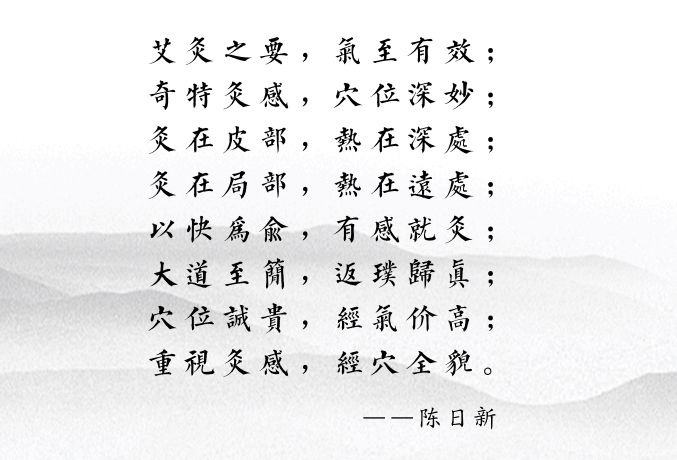 艾灸之要，氣至有效；
奇特灸感，穴位深妙；
灸在皮部，熱在深處；
灸在局部，熱在遠處；
以快爲俞，有感就灸；
大道至簡，返璞歸眞；
穴位誠貴，經氣价高；
重視灸感，經穴全貌。
——陈日新